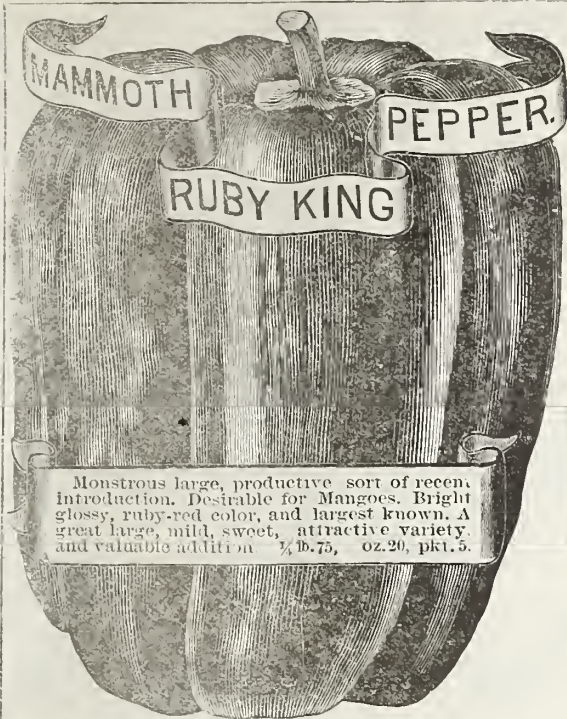 MAMMOTH
RUBY KING
PEPPER.
Monstrous large, productive sort of recent
introduction. Desirable for Mangoes. Bright
glossy, ruby-red color, and largest known. A
great large, mild, sweet, attractive variety,
and valuable addition ¼ lb.75, oz.20, pkt.5.